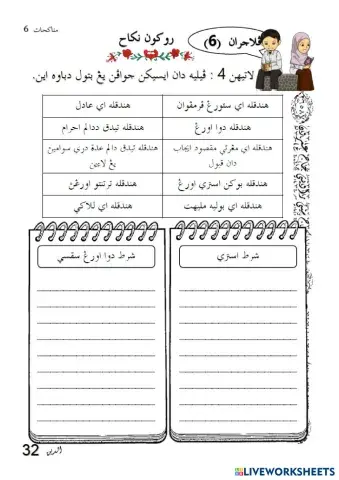 مناكحات 6
ڤلاجران (6)
روكون نكاح
لاتيهن 4 : ڤيليه دان ايسيكن جواڤن يڠ بتول دباوه اين.
هندقله اي سئورڠ ڤرمڤوان
هندقله اي عادل
هندقله دوا اورڠ
هندقله تيدق ددالم احرام
هندقله اي مڠرتي مقصود ايجاب دان قبول
هندقله تيدق دالم عدة دري سوامين يڠ لاءين
هندقله بوكن استري اورڠ
هندقله ترتنتو اورڠن
هندقله اي بوليه مليهت
هندقله اي للاكي
شرط استري
شرط دوا اورڠ سقسي
الدين 32
LIVEWORKSHEETS